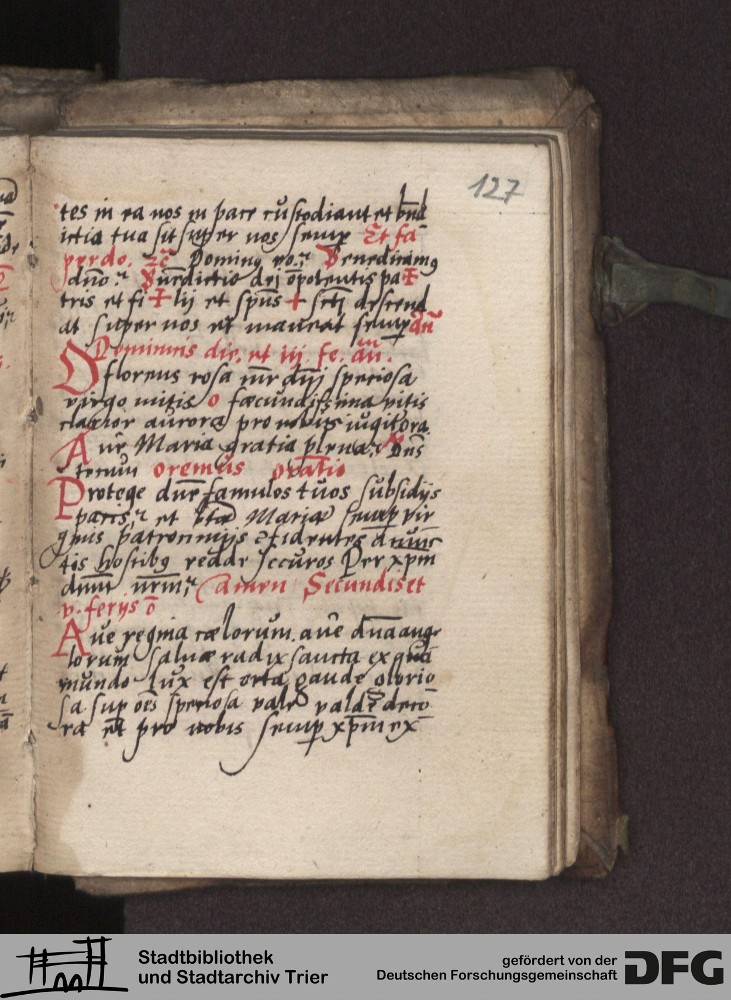 127
tes in ea nos in pace custodiant et bn̄d
ictia tua sit super nos semp Et fa
Dominus vo. Benedicamus
dn̄o. Bn̄edictio dei om̄ipotentis pa ✝
tris et fi ✝ lij et sp̄us ✝ sct̄i descend
at super nos et maneat semp an̄
Dominicis die. et iij. fe. an̄.
O florens rosa mr̄ dn̄i speciosa
virgo mitis o fæcundissima vitis
clarior aurora pro nobis iugit ora
Ave Maria gratia plena. Dn̄s
tecum oremus oratio
Protege dn̄e famulos tuos subsidijs
pacis et bt̄æ Mariæ semp vir
ginis patrocinijs cōfidentes a cunc
tis hostibus redde securos Per xp̄m
dn̄m nr̄m Amen Secundis et
v. ferijs ō
Ave regina cælorum. ave dn̄a ange
lorum salve radix sancta ex qua
mundo lux est orta gaude glorio
sa sup oēs speciosa vale valde deco
ra et pro nobis semp xp̄m ex
Stadtbibliothek
und Stadtarchiv Trier
gefördert von der
Deutschen Forschungsgemeinschaft
DFG